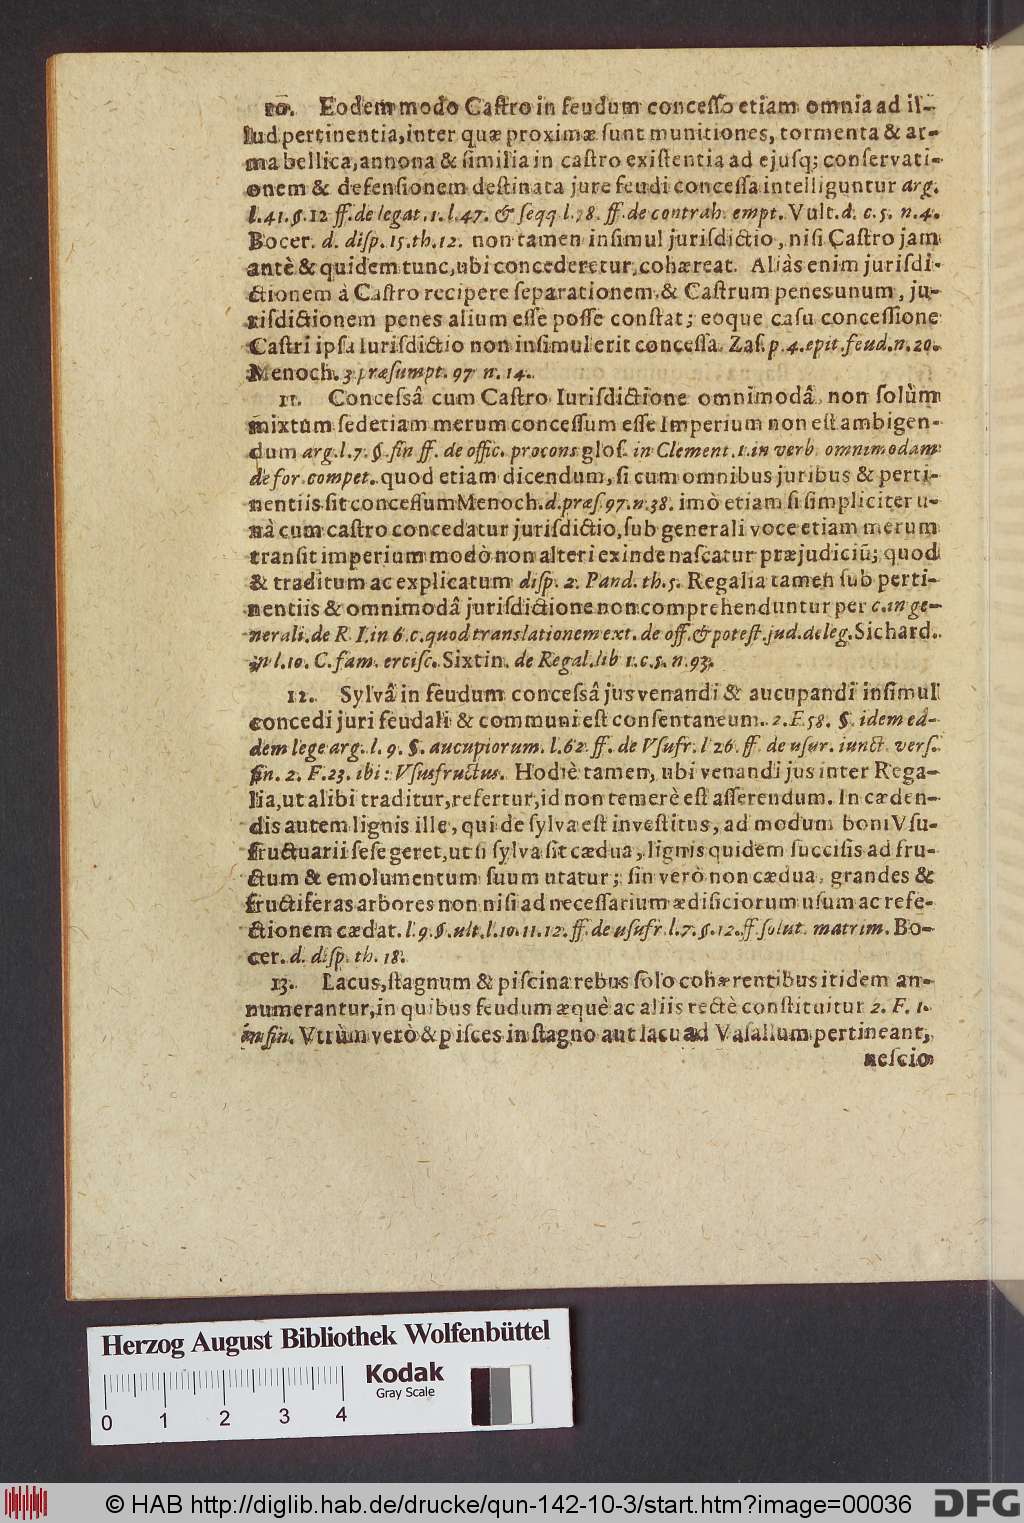 10. Eodem modo Castro in feudum concesso etiam omnia ad il-
lud pertinentia, inter quæ proximæ sunt munitiones, tormenta & ar-
ma bellica, annona & similia in castro existentia ad ejusq; conservati-
onem & defensionem destinata jure feudi concessa intelliguntur arg.
l. 41. §. 12 ff. de legat. 1. l. 47. & seqq l. 78. ff. de contrah. empt. Vult. d. c. 5. n. 4.
Bocer. d. disp. 15. th. 12. non tamen insimul jurisdictio, nisi Castro jam
antè & quidem tunc, ubi concederetur, cohæreat. Aliàs enim jurisdi-
ctionem à Castro recipere separationem & Castrum penes unum, ju-
risdictionem penes alium esse posse constat; eoque casu concessione
Castri ipsa Iurisdictio non insimul erit concessa. Zas. p. 4. epit. feud. n. 20.
Menoch. 3 præsumpt. 97 n. 14.
11. Concessâ cum Castro Iurisdictione omnimodâ, non solùm
mixtum sed etiam merum concessum esse Imperium non est ambigen-
dum arg. l. 7. §. fin ff. de offic. procons glos. in Clement. 1. in verb omnimodam
de for. compet. quod etiam dicendum, si cum omnibus juribus & perti-
nentiis sit concessum Menoch. d. præs. 97. n. 38. imò etiam si simpliciter u-
nà cum castro concedatur jurisdictio, sub generali voce etiam merum
transit imperium modò non alteri exinde nascatur præjudiciũ; quod
& traditum ac explicatum disp. 2. Pand. th. 5. Regalia tamen sub perti-
nentiis & omnimodâ jurisdictione non comprehenduntur per c. in ge-
nerali. de R. I. in 6. c. quod translationem ext. de off. & potest. jud. deleg. Sichard.
in l. 10. C. fam. ercisc. Sixtin. de Regal. lib 1. c. 5. n. 93.
12. Sylvâ in feudum concessâ jus venandi & aucupandi insimul
concedi juri feudali & communi est consentaneum. 2. F. 58. §. idem ea-
dem lege arg. l. 9. §. aucupiorum. l. 62. ff. de Vsufr. l 26. ff. de usur. iunct. vers.
fin. 2. F. 23. ibi: Vsusfructus. Hodiè tamen, ubi venandi jus inter Rega-
lia, ut alibi traditur, refertur, id non temerè est asserendum. In cæden-
dis autem lignis ille, qui de sylva est investitus, ad modum boni Vsu-
fructuarii sese geret, ut si sylva sit cædua, lignis quidem succisis ad fru-
ctum & emolumentum suum utatur; sin verò non cædua, grandes &
fructiferas arbores non nisi ad necessarium ædificiorum usum ac refe-
ctionem cædat. l. 9. §. ult. l. 10. 11. 12. ff. de usufr. l. 7. §. 12. ff. solut. matrim. Bo-
cer. d. disp. th. 18.
13. Lacus, stagnum & piscina rebus solo cohærentibus itidem an-
numerantur, in quibus feudum æquè ac aliis rectè constituitur 2. F. 1.
in fin. Vtrùm verò & pisces in stagno aut lacu ad Vasallum pertineant,
nescio
Herzog August Bibliothek Wolfenbüttel
Kodak
Gray Scale
0 1 2 3 4
© HAB http://diglib.hab.de/drucke/qun-142-10-3/start.htm?image=00036
DFG